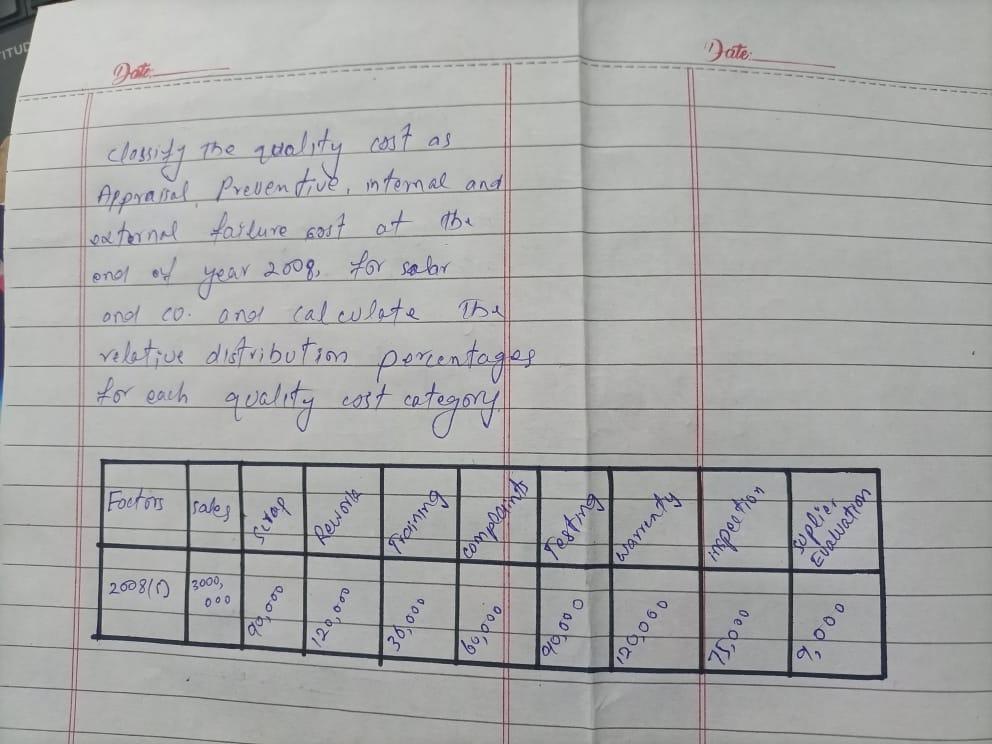 TITUD
Date:
Date:
classify the quality cost as
Appraisal, Preventive, internal and
external failure cost at the
end of year 2008, for salar
and co. and calculate the
relative distribution percentages
for each quality cost category.
Factors sales scrap Rework Training complaints Testing warrenty inspection suplier Evaluation
2008($) 3000,000 90,000 120,000 30,000 60,000 90,000 120,000 75,000 9,000